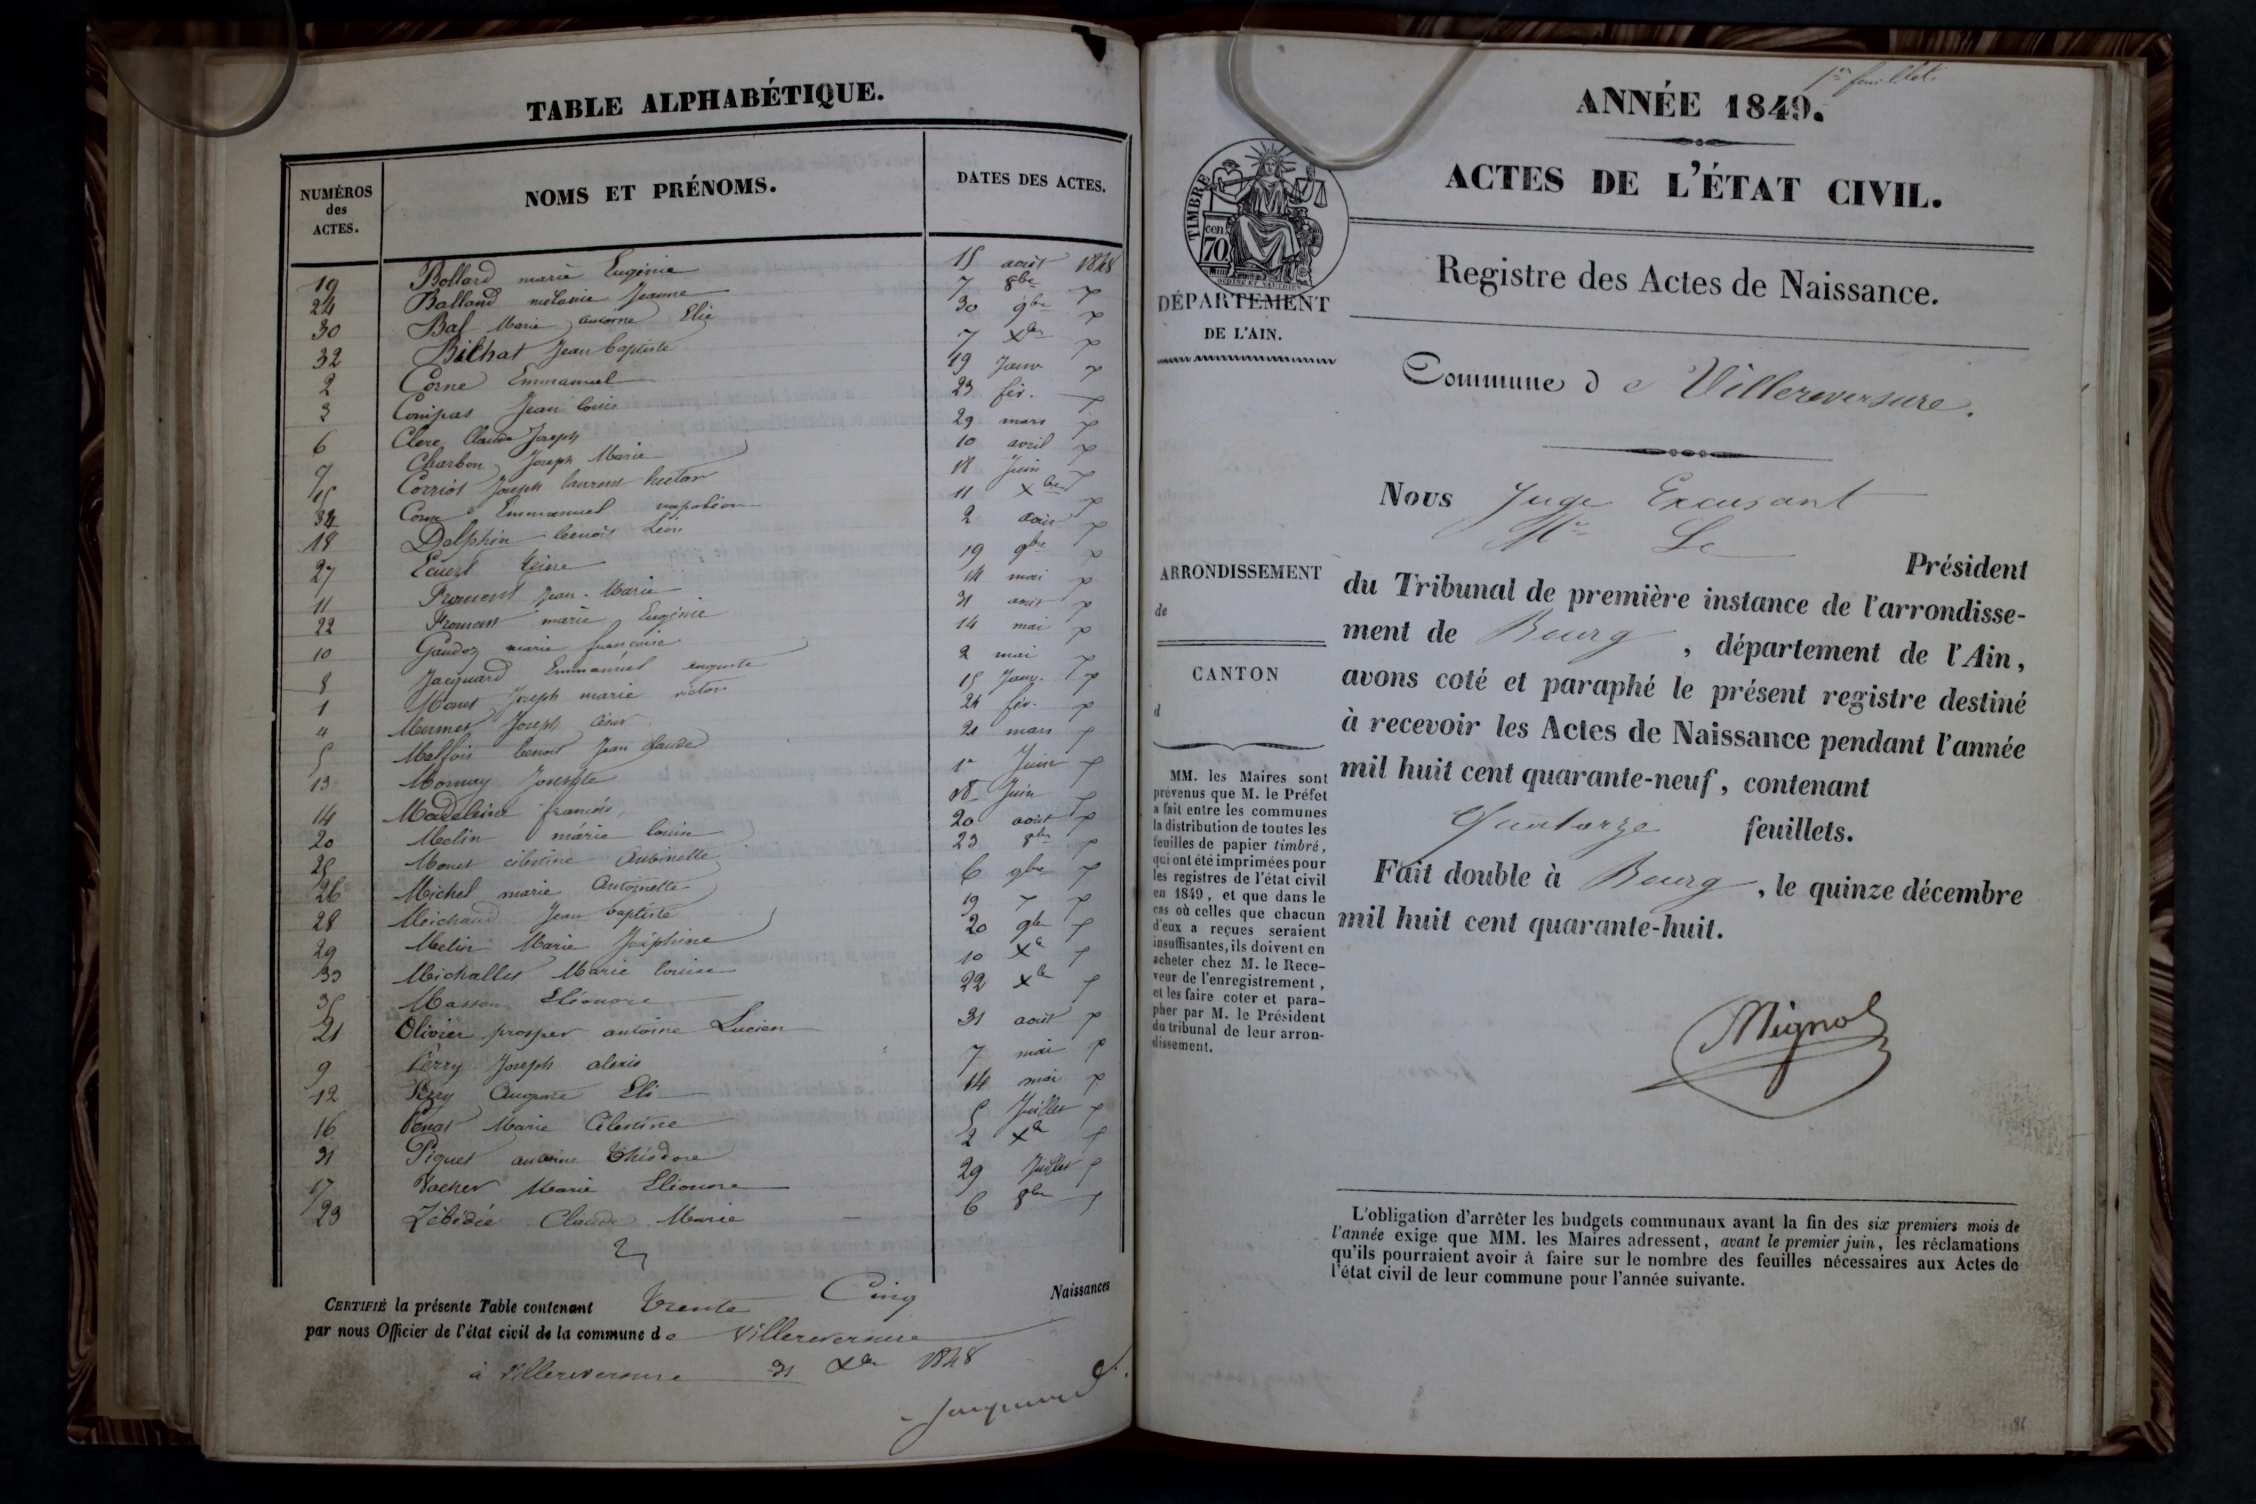 TABLE ALPHABÉTIQUE.
NUMÉROS des ACTES. NOMS ET PRÉNOMS. DATES DES ACTES.
19 Bollard marie Eugénie 15 août 1848
24 Balland melanie Jeanne 7 8bre
30 Baf Marie antoine Elie 30 9bre
32 Bichat Jean baptiste 7 Xbre
2 Corne Emmanuel 19 Janv
3 Compas Jean louis 23 fév.
6 Clerc Claude Joseph 29 mars
7 Charbon Joseph Marie 10 avril
15 Corriot Joseph laurent hector 18 Juin
34 Corne Emmanuel napoléon 11 Xbre
18 Dalphin benoit Léon 2 août
27 19 9bre
11 Froment Jean-Marie 14 mai
22 Froment marie Eugénie 31 août
10 Gaudoz marie françoise 14 mai
8 Jacquard Emmanuel auguste 2 mai
1 Monet Joseph marie victor 15 Janv.
4 Mermet Joseph César 24 fév.
5 benoit Jean Claude 21 mars
13 Mornay Josephte 1er Juin
14 Madeleine françois 18 Juin
20 Melin marie louise 20 août
25 Monet célestine Antoinette 23 8bre
26 Michel marie Antoinette 6 9bre
28 Meichaud Jean baptiste 19
29 Melin Marie Joséphine 20 9bre
33 Michallet Marie louise 10 Xbre
35 Masson Eléonore 22 Xbre
21 Olivier prosper antoine Lucien 31 août
9 Perry Joseph alexis 7 mai
12 Perry Auguste Eli 14 mai
16 Penat Marie Célestine 5 Juillet
31 Piquet antoine Théodore 2 Xbre
17 Vacher Marie Eléonore 29 Juillet
23 Zébédée Claude Marie 6 8bre
CERTIFIÉ la présente Table contenant Trente Cinq Naissances
par nous Officier de l'état civil de la commune de Villereversure
à Villereversure 31 Xbre 1848
Jacquard
1er feuillet.
ANNÉE 1849.
ACTES DE L'ÉTAT CIVIL.
Registre des Actes de Naissance.
TIMBRE
70 cen
DÉPARTEMENT
DE L'AIN.
Commune de Villereversure.
Nous Juge Excusant
Mr Le Président
du Tribunal de première instance de l'arrondisse-
ment de Bourg, département de l'Ain,
avons coté et paraphé le présent registre destiné
à recevoir les Actes de Naissance pendant l'année
mil huit cent quarante-neuf, contenant
Quatorze feuillets.
Fait double à Bourg, le quinze décembre
mil huit cent quarante-huit.
Mignot
ARRONDISSEMENT
de
CANTON
d
MM. les Maires sont
prévenus que M. le Préfet
a fait entre les communes
la distribution de toutes les
feuilles de papier timbré,
qui ont été imprimées pour
les registres de l'état civil
en 1849, et que dans le
cas où celles que chacun
d'eux a reçues seraient
insuffisantes, ils doivent en
acheter chez M. le Rece-
veur de l'enregistrement,
et les faire coter et para-
pher par M. le Président
du tribunal de leur arron-
dissement.
L'obligation d'arrêter les budgets communaux avant la fin des six premiers mois de
l'année exige que MM. les Maires adressent, avant le premier juin, les réclamations
qu'ils pourraient avoir à faire sur le nombre des feuilles nécessaires aux Actes de
l'état civil de leur commune pour l'année suivante.
86